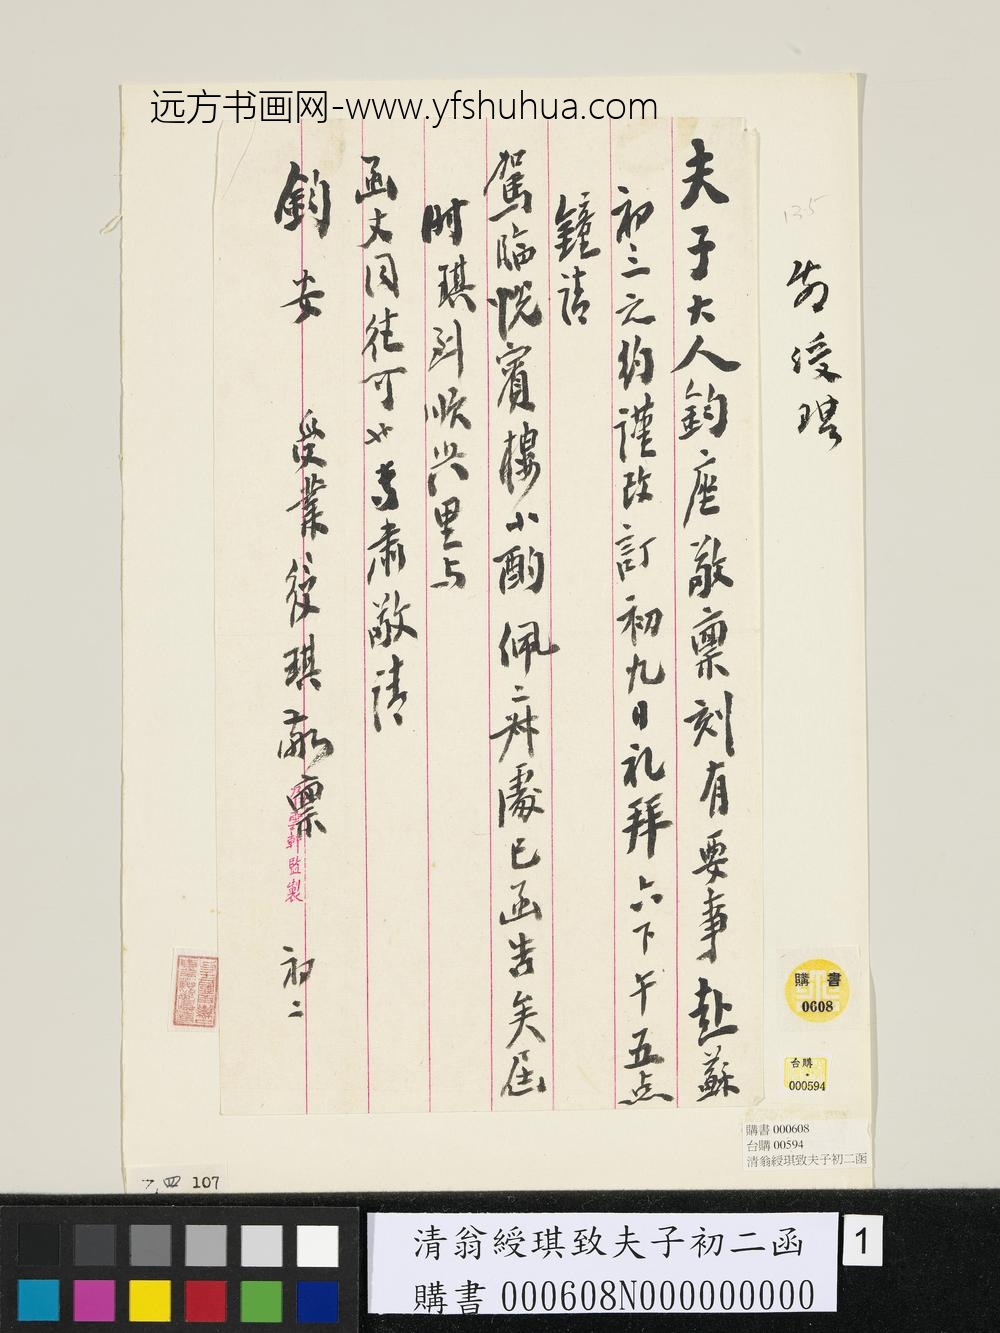 远方书画网-www.yfshuhua.com
夫子大人鈞座敬禀刻有要事赴蘇
初三之約謹改訂初九日礼拜六下午五点
鐘請
駕臨悦賓樓小酌佩二丈處已函告矣届
时琪到順兴里与
函丈同徃可也専肃敬請
鈞安
受業綬琪敬禀
初二
雲軒監製
135
翁綬琪
購書
0608
台購
000594
購書 000608
台購 00594
清翁綬琪致夫子初二函
四 107
清翁綬琪致夫子初二函
購書 000608N000000000
1